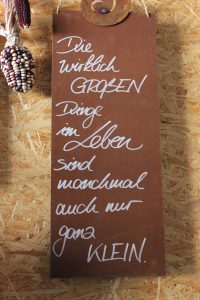 Die
wirklich
GROßEN
Dinge
im
Leben
sind
manchmal
auch nur
ganz
KLEIN.